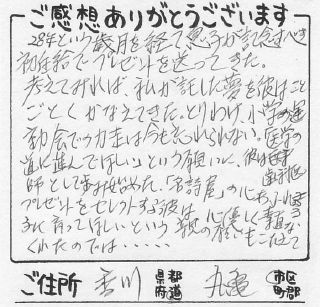 ご感想ありがとうございます
28年という歳月を経て息子が記念すべき
初任給でプレゼントを送ってきた。
考えてみれば、私が託した夢を彼はこと
ごとくかなえてきた。とりわけ、小学の運
動会での力走は今も忘れられない。医学の
道に進んでほしいという願いに、彼は
師として歩み始めた。「名詩屋」の心あふれる
プレゼントをセレクトする彼は、心優しく素直な
子に育ってほしいという親の願いもこたえて
くれたのでは・・・・・
ご住所 香川 都道府県 丸亀 市区町郡